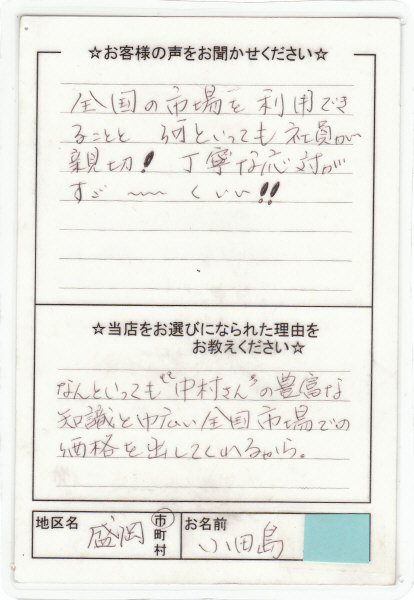 ☆お客様の声をお聞かせください☆
全国の市場を利用でき
ることと 何といっても社員が
親切! 丁寧な応対が
すご〜〜くいい!!
☆当店をお選びになられた理由を
お教えください☆
なんといっても“中村さん”の豊富な
知識と巾広い全国市場での
価格を出してくれるから。
地区名 盛岡 市町村 お名前 小田島